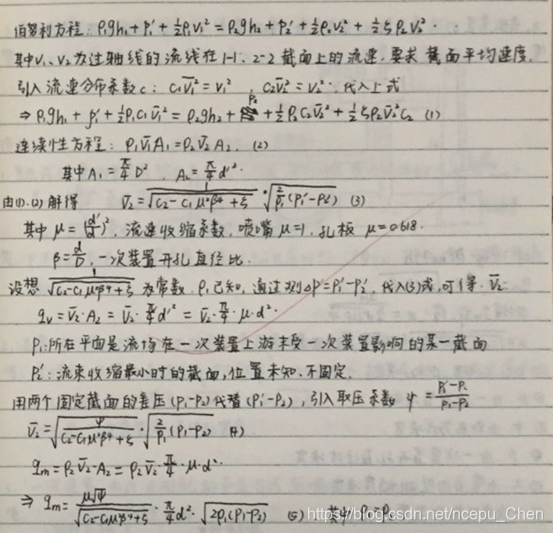 伯努利方程: ρ₁gh₁ + p₁' + ½ρ₁v₁² = ρ₂gh₂ + p₂' + ½ρ₂v₂² + ½ξρ₂v̄₂²
其中v₁、v₂为过轴线的流线在1-1、2-2截面上的流速, 要求截面平均速度.
引入流速分布系数c: c₁v̄₁² = v₁², c₂v̄₂² = v₂². 代入上式
⇒ ρ₁gh₁ + p₁' + ½ρ₁c₁v̄₁² = ρ₂gh₂ + p₂' + ½ρ₂c₂v̄₂² + ½ξρ₂v̄₂² (1)
连续性方程: ρ₁v̄₁A₁ = ρ₂v̄₂A₂. (2)
其中A₁ = π/4 D², A₂ = π/4 d'².
由(1).(2)解得 v̄₂ = 1/√(c₂-c₁μ²β⁴+ξ) · √(2/ρ₁ (p₁'-p₂')) (3)
其中 μ = (d'/d)², 流速收缩系数, 喷嘴μ=1, 孔板 μ=0.618.
β = d/D, 一次装置开孔直径比.
设想 1/√(c₂-c₁μ²β⁴+ξ) 为常数, ρ₁已知, 通过测Δp = p₁'-p₂', 代入(3)式, 可得 v̄₂.
qv = v̄₂·A₂ = v̄₂·π/4 d'² = v̄₂·π/4·μ·d².
p₁'所在平面是流场在一次装置上游未受一次装置影响的某一截面
p₂': 流束收缩最小时的截面, 位置未知. 不固定.
用两个固定截面的差压(p₁-p₂)代替(p₁'-p₂'), 引入取压系数 ψ = (p₁'-p₂')/(p₁-p₂)
v̄₂ = √(ψ/(c₂-c₁μ²β⁴+ξ)) · √(2/ρ₁ (p₁-p₂)) (4)
qm = ρ₂v̄₂·A₂ = ρ₂v̄₂·π/4·μ·d².
⇒ qm = μ√ψ/√(c₂-c₁μ²β⁴+ξ) · π/4 d² · √(2ρ₁(p₁-p₂)) (5) 其中ρ₁=ρ₂
https://blog.csdn.net/ncepu_Chen